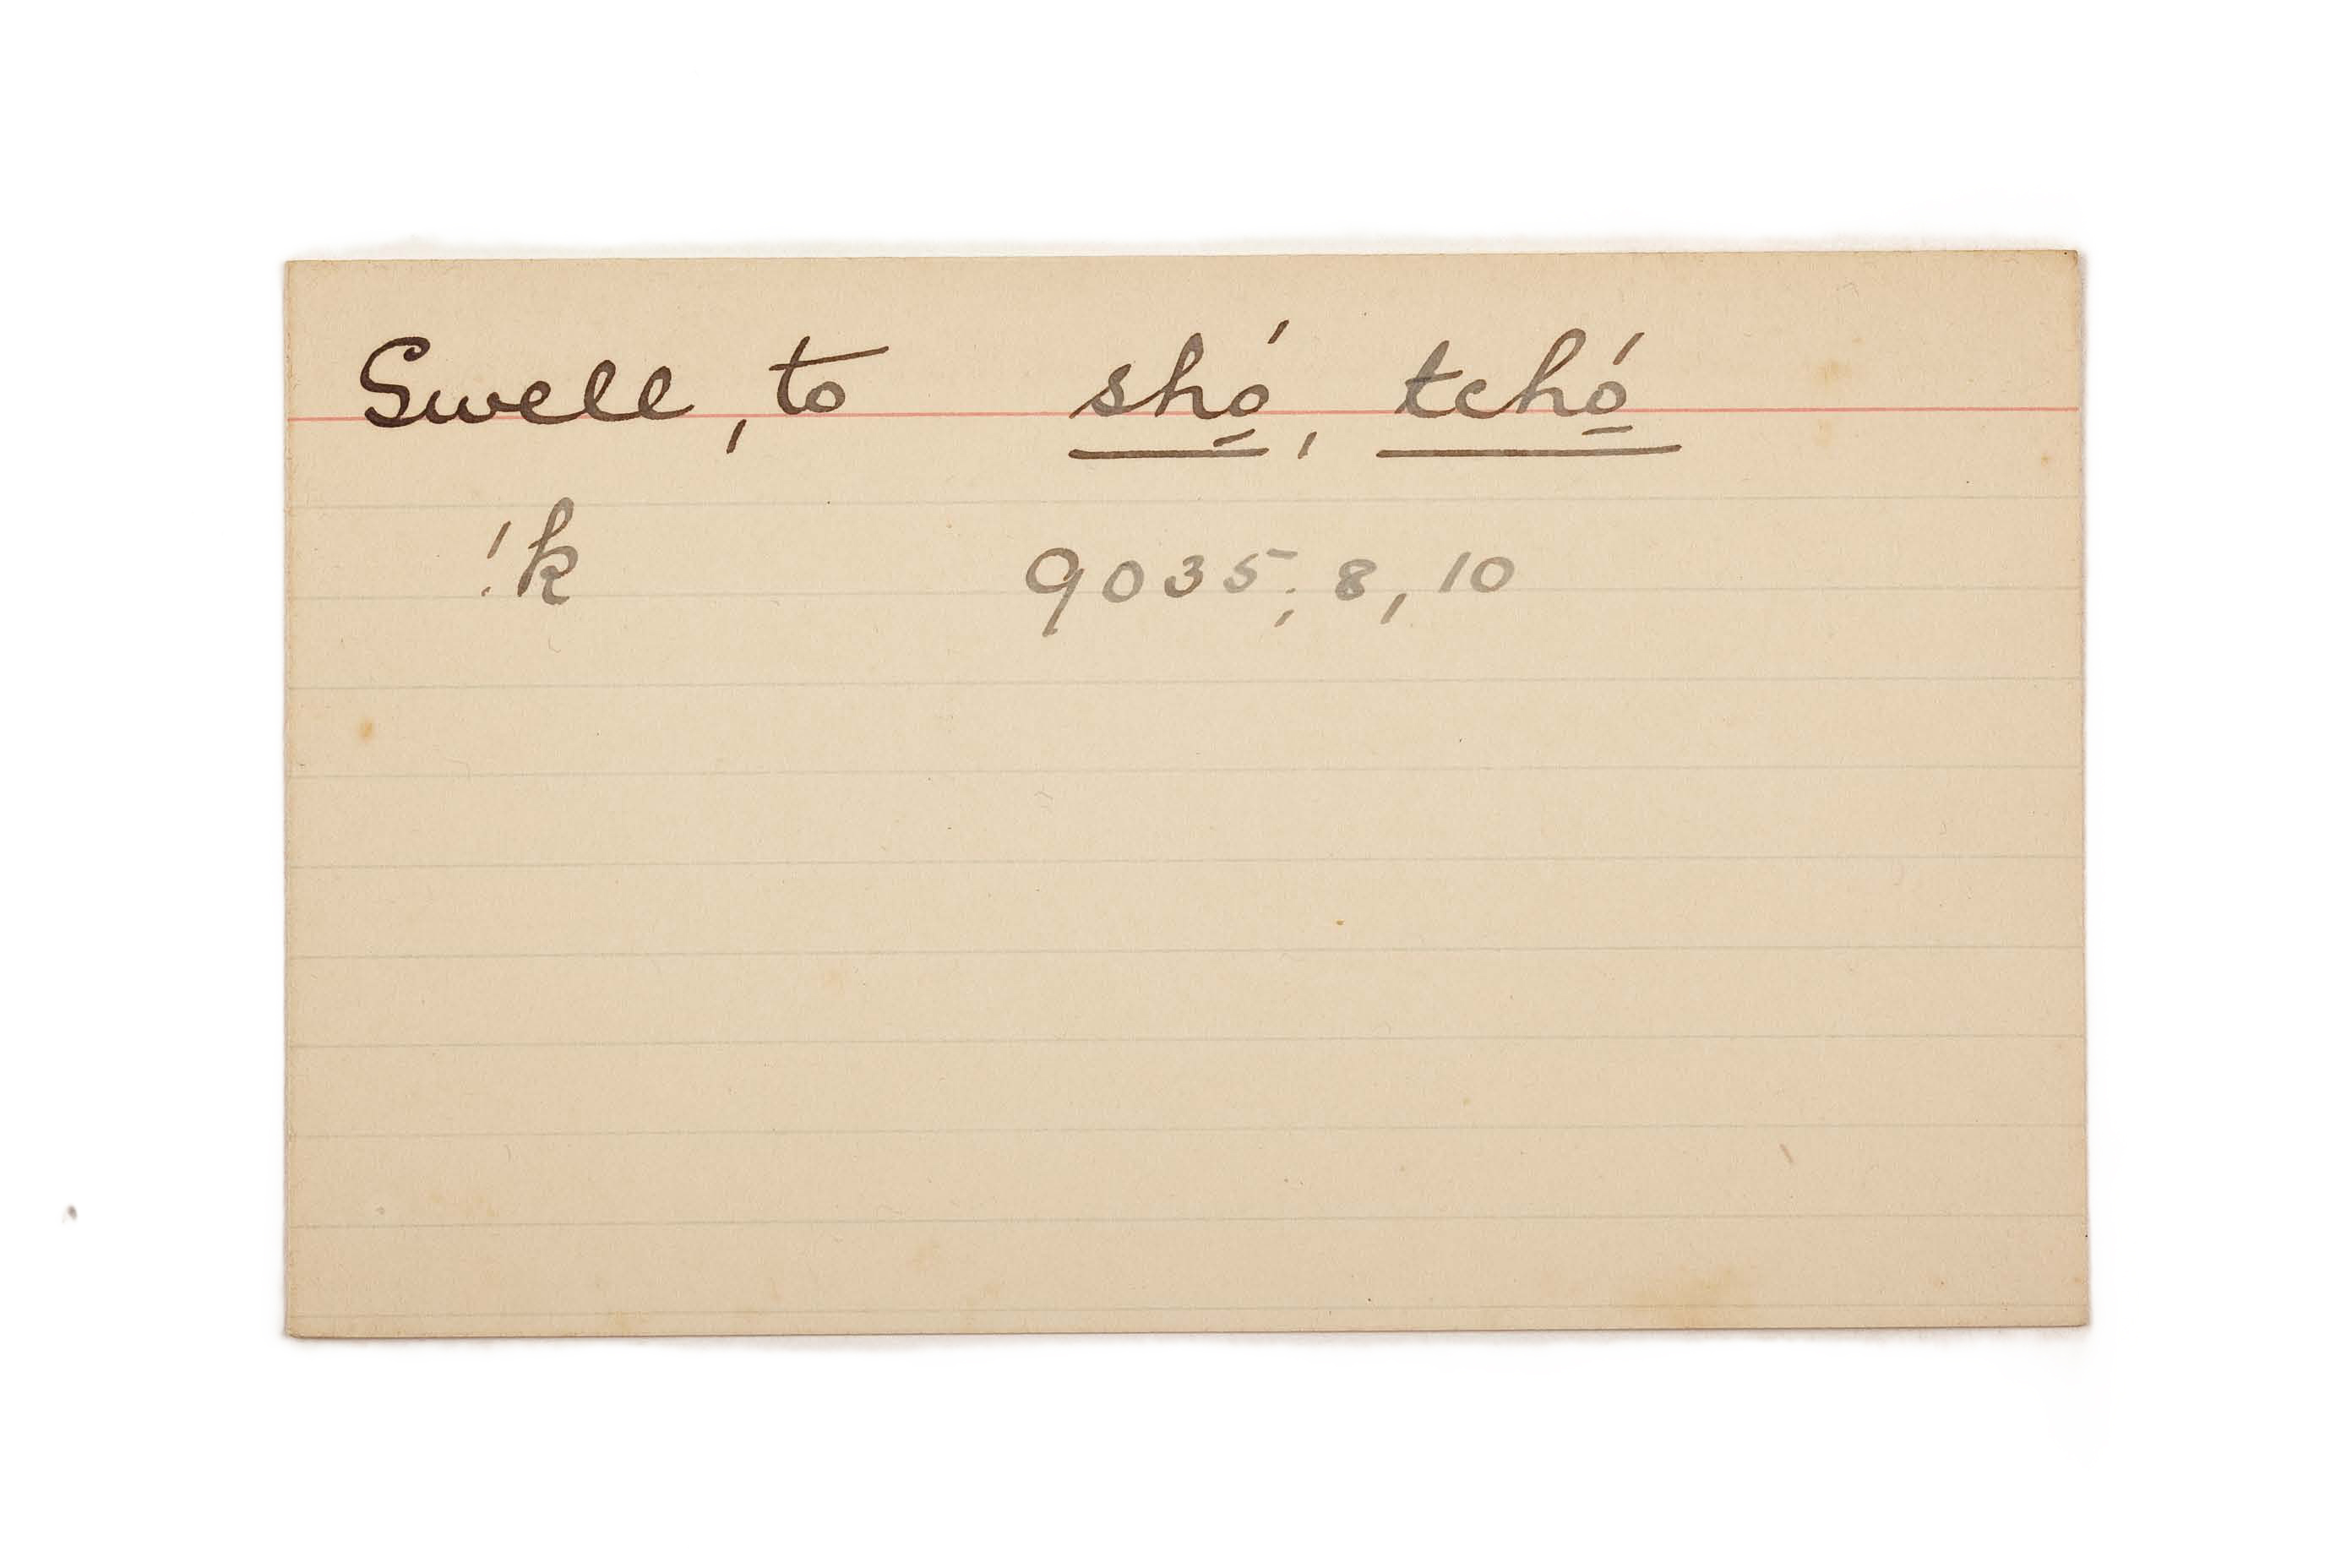 Swell, to shó̱, tchó̱
!k 9035; 8, 10